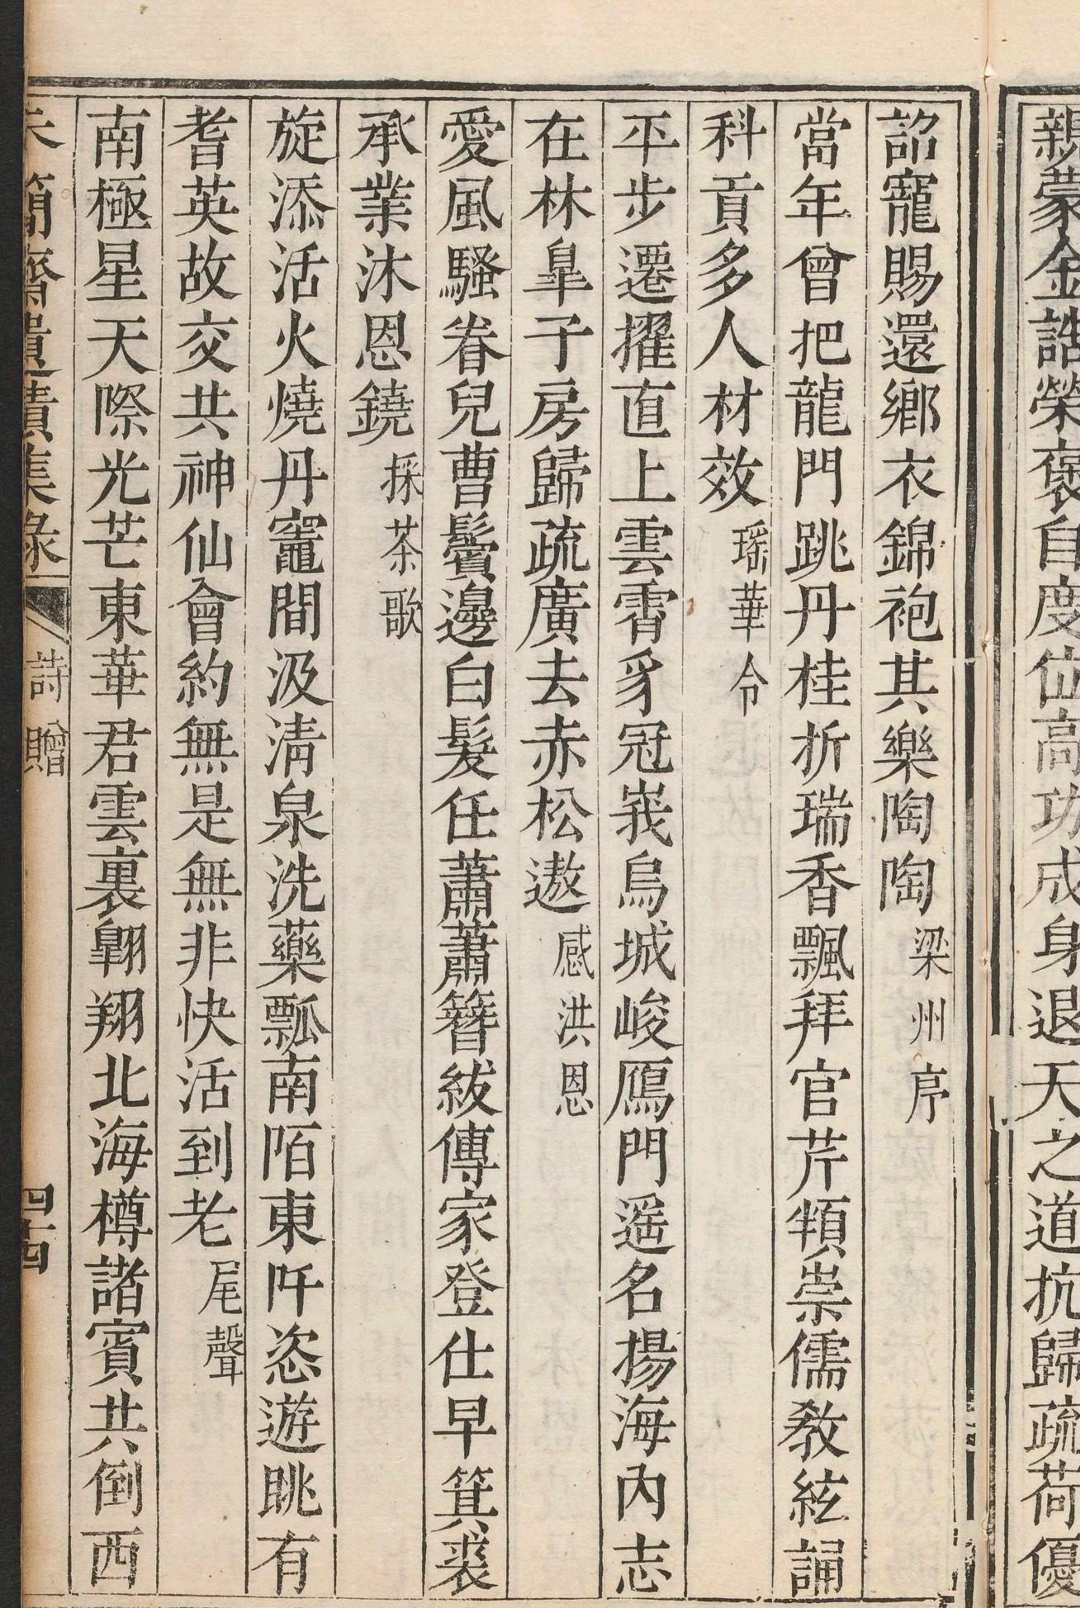 親蒙金誥榮褒自度位高功成身退天之道抗歸疏荷優
詔寵賜還鄉衣錦袍其樂陶陶梁州序
當年曾把龍門跳丹桂折瑞香飄拜官芹頖崇儒教絃誦
科貢多人材效瑶華令
平步遷擢直上雲霄豸冠峩烏城峻鴈門遥名揚海內志
在林皐子房歸疏廣去赤松遨感洪恩
愛風騷眷兒曹鬢邊白髮任蕭蕭簪紱傳家登仕早箕裘
承業沐恩鐃採茶歌
旋添活火燒丹竈間汲清泉洗藥瓢南陌東阡恣遊眺有
耆英故交共神仙會約無是無非快活到老尾聲
南極星天際光芒東華君雲裏翺翔北海樽諸賓共倒西
簡齋遺集錄 詩贈 四十四